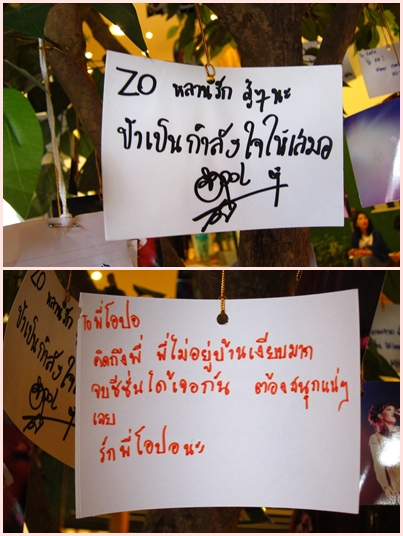 ZO หลานรัก สู้ๆนะ
ป้าเป็นกำลังใจให้เสมอ
ZO หลานรัก
ป้าเป็นกำลังใจ
To พี่โอปอ
คิดถึงพี่ พี่ไม่อยู่บ้านเงียบมาก
จบซีซั่นได้เจอกัน ต้องสนุกแน่ๆ
เลย
รักพี่โอปอนะ